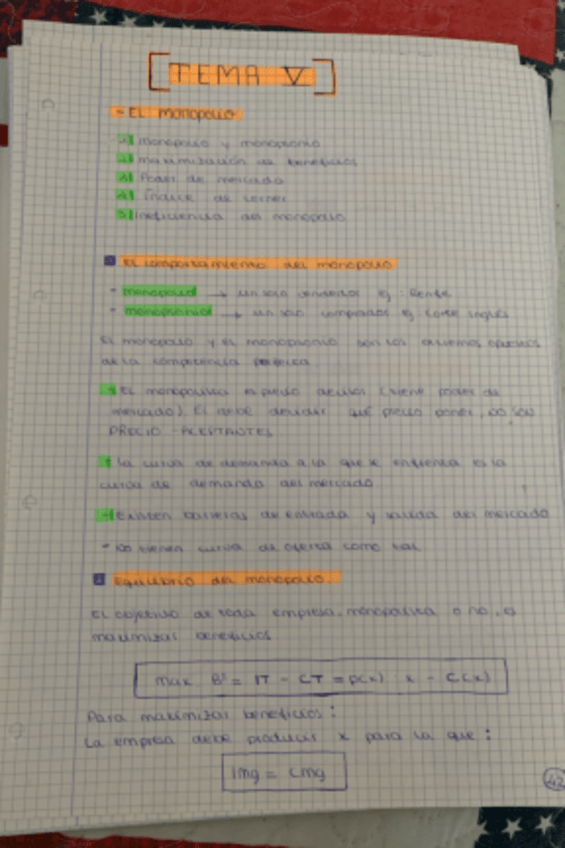 [TEMA V]
- El monopolio
1) monopolio y monopsonio
2) maximización de beneficios
3) Poder de mercado
4) Índice de Lerner
5) Ineficiencia del monopolio
1 El comportamiento del monopolio
- monopolio → un solo vendedor ej: Renfe
- monopsonio → un solo comprador ej: Corte Inglés
El monopolio y el monopsonio son los extremos opuestos
de la competencia perfecta
El monopolista es precio decisor (tiene poder de
mercado). El debe decidir qué precio poner, no son
PRECIO-ACEPTANTES
la curva de demanda a la que se enfrenta es la
curva de demanda del mercado
Existen barreras de entrada y salida del mercado
- No tienen curva de oferta como tal
2 Equilibrio del monopolio
El objetivo de toda empresa, monopolista o no, es
maximizar beneficios
max B = IT - CT = p(x) · x - C(x)
Para maximizar beneficios:
La empresa debe producir x para la que:
Img = Cmg
42